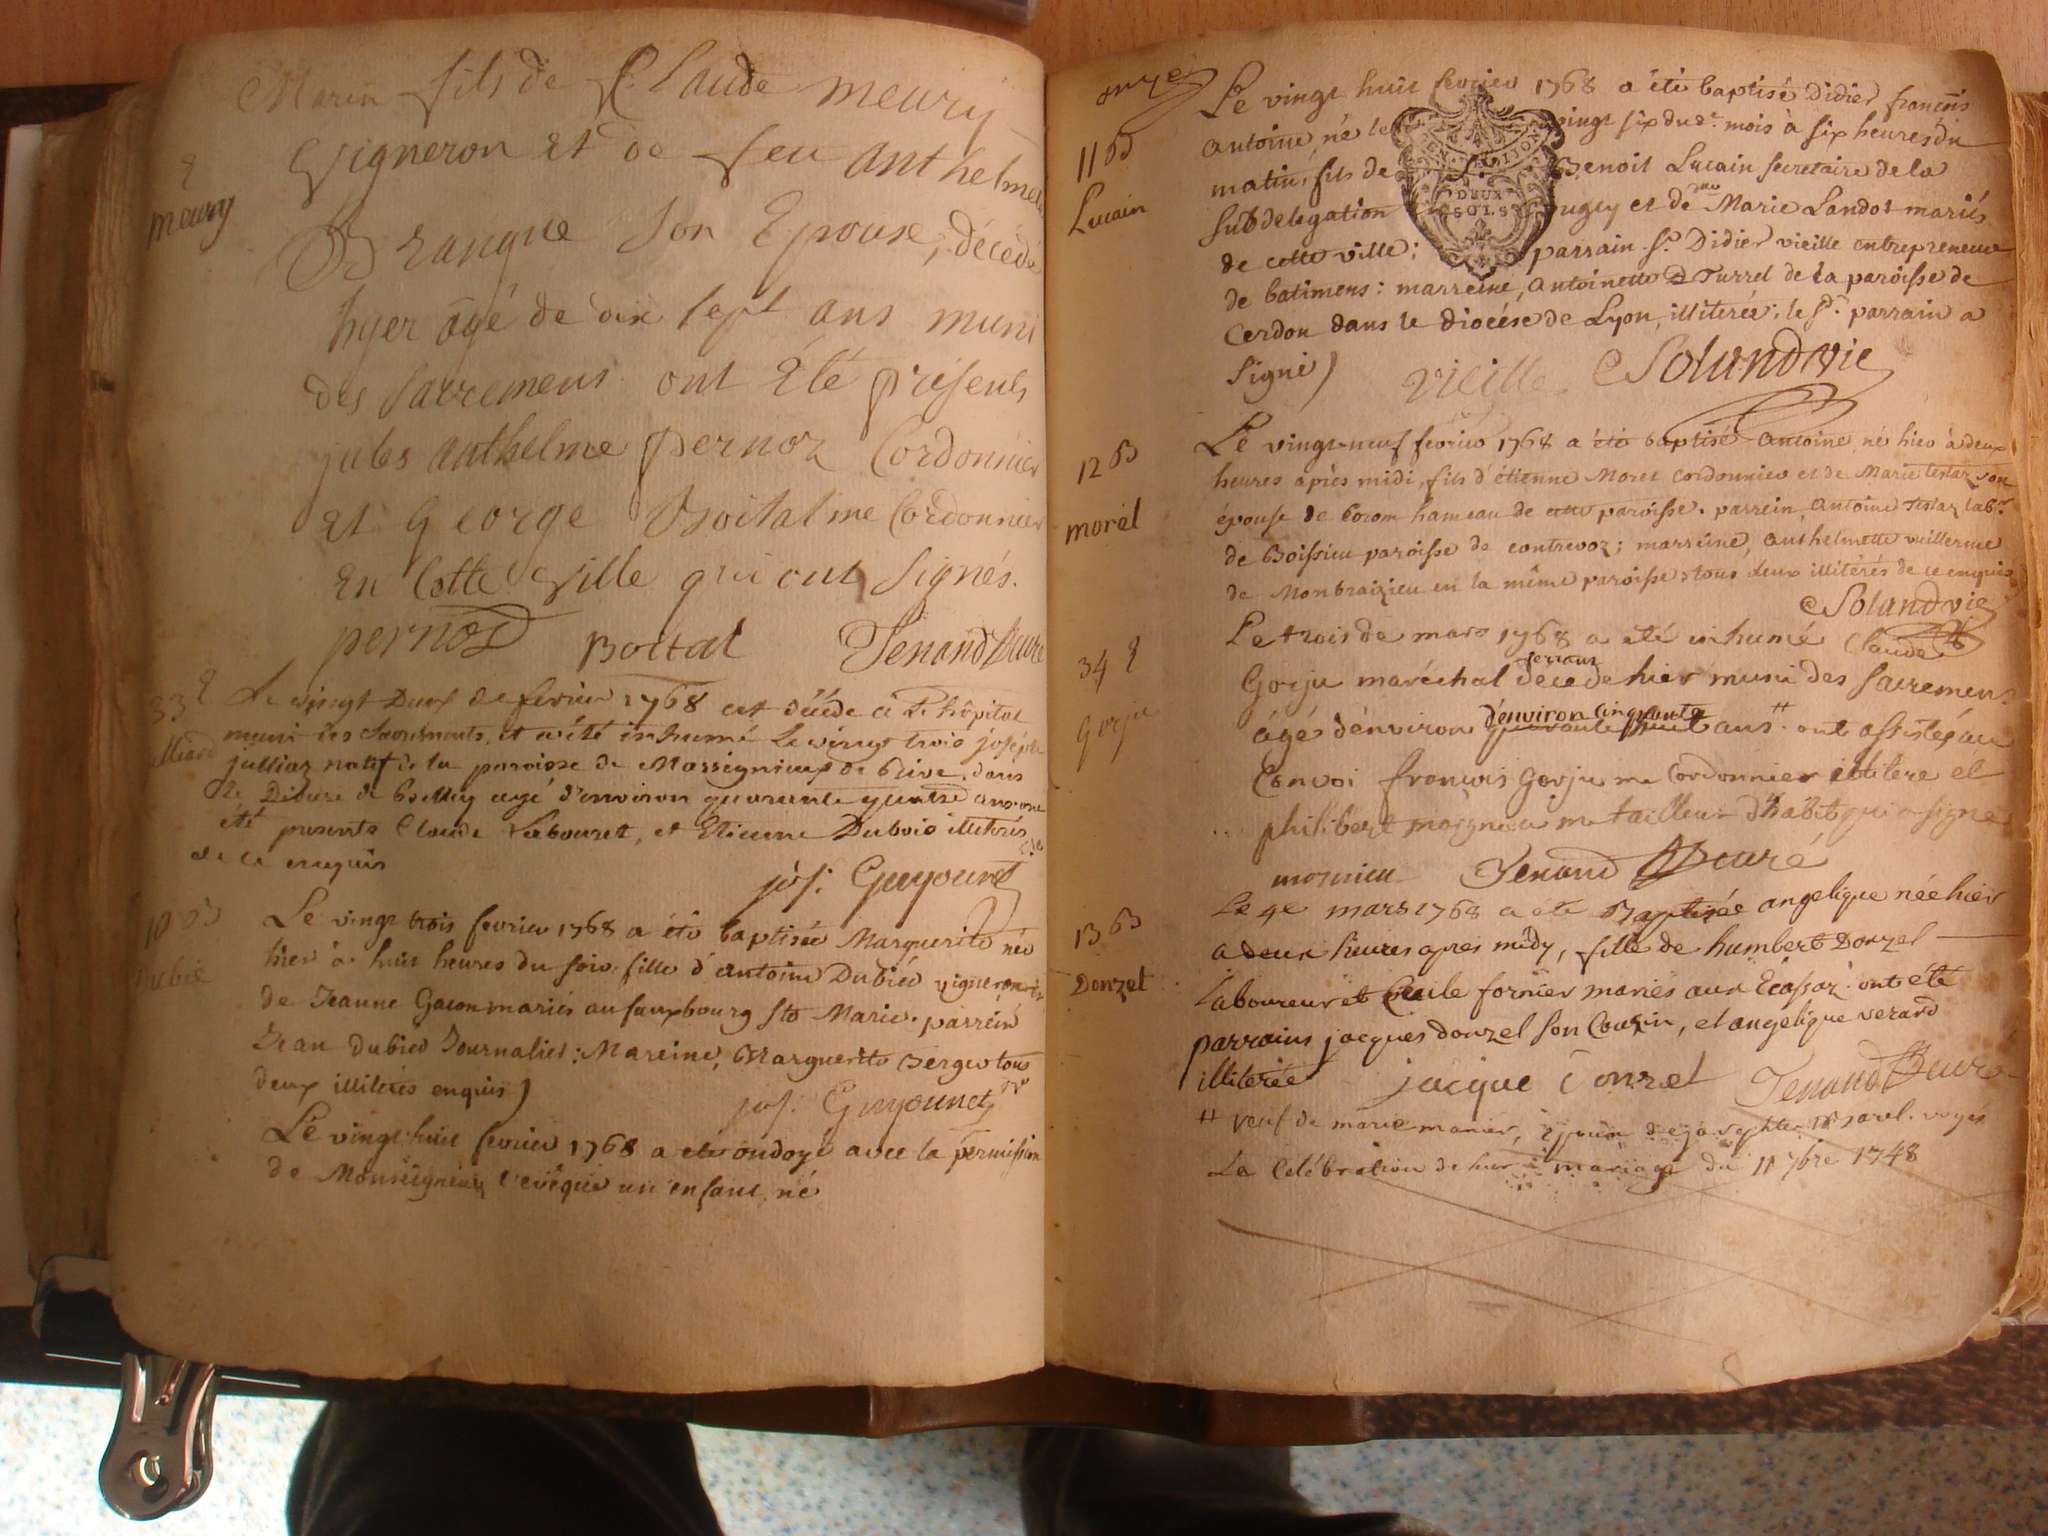 Marin fils de Claude meury
vigneron Et de feu anthelmette
Brangue son Epouse, décédé
hyer agé de dix sept ans muni
des sacremens ont Eté présents
jules anthelme pernoz Cordonnier
Et George Boital me Cordonnier
En Cette ville qui ont signés.
pernoz Boital Tenand Curé
8
meury
33 8
Le vingt Deux de fevrier 1768 est décédé à L'hôpital
muni des Sacrements, et a été inhumé Le vingt trois joseph
julliar natif de la paroisse de Massignieux de Rive, dans
Le Diocese de Belley agé d'environ quarante quatre ans ont
été presents Claude Labouret, et Etienne Dubois illiterés
de ce enquis
jos: Guyounet
10 B
Dubié
Le vingt trois fevrier 1768 a été baptisée Marguerite née
hier à huit heures du soir fille d'antoine Dubied vigneron et
de Jeanne Gacon mariés au fauxbourg Ste Marie. parrein
Jean dubied Journalier: Mareine, Marguerite Berger tous
deux illiterés enquis)
jos. Guyounet
Le vingt huit fevrier 1768 a eté ondoyé avec la permission
de Monseigneur l'evêque un enfant né
onze
11 B
Lucain
Le vingt huit fevrier 1768 a été baptisé Didier françois
antoine, né le vingt six du dt. mois à six heures du
matin, fils de Benoit Lucain secretaire de la
subdelegation Bugey et de dlle Marie Landot mariés
de cette ville; parrain sr. Didier vieille entrepreneur
de batimens: marreine, antoinette Turrel de la paroisse de
Cerdon dans le diocése de Lyon, illiterée; le sr. parrain a
signé)
vieille Solund vic
EN ATION
DEUX
SOLS
12 B
morel
Le vingt-neuf fevrier 1768 a été baptisé antoine, né hier à deux
heures après midi, fils d'étienne Morel cordonnier et de Marie testaz son
épouse de Corom hameau de cette paroisse. parrein, antoine testaz labr.
de Boissieu paroisse de contrevoz; marreine, anthelmette vuillerme
de Montbraizieu en la même paroisse, tous deux illitérés de ce enquis
Solund vic
34 8
gorju
Le trois de mars 1768 a eté inhumé Claude
Gorju maréchal ferrant décedé hier muni des sacremens
ágés d'énviron d'environ cinquante quarante huit ans # ont assistés au
Convoi francois Gorju me Cordonnier illitere et
philibert mognieu me tailleur d'habit qui a signé
mognieu Tenand Curé
13 B
Donzel
Le 4e mars 1768 a été Baptisée angelique née hier
a deux heures apres midy, fille de humbert Donzel
Laboureur et Cecile fornier mariés aux Ecassaz. ont été
parrains jacques donzel son Cousin, et angélique verard
illiterée jacque donzel Tenand Curé
# veuf de marie manier,
La Celébration de leur mariage du 11 7bre 1748